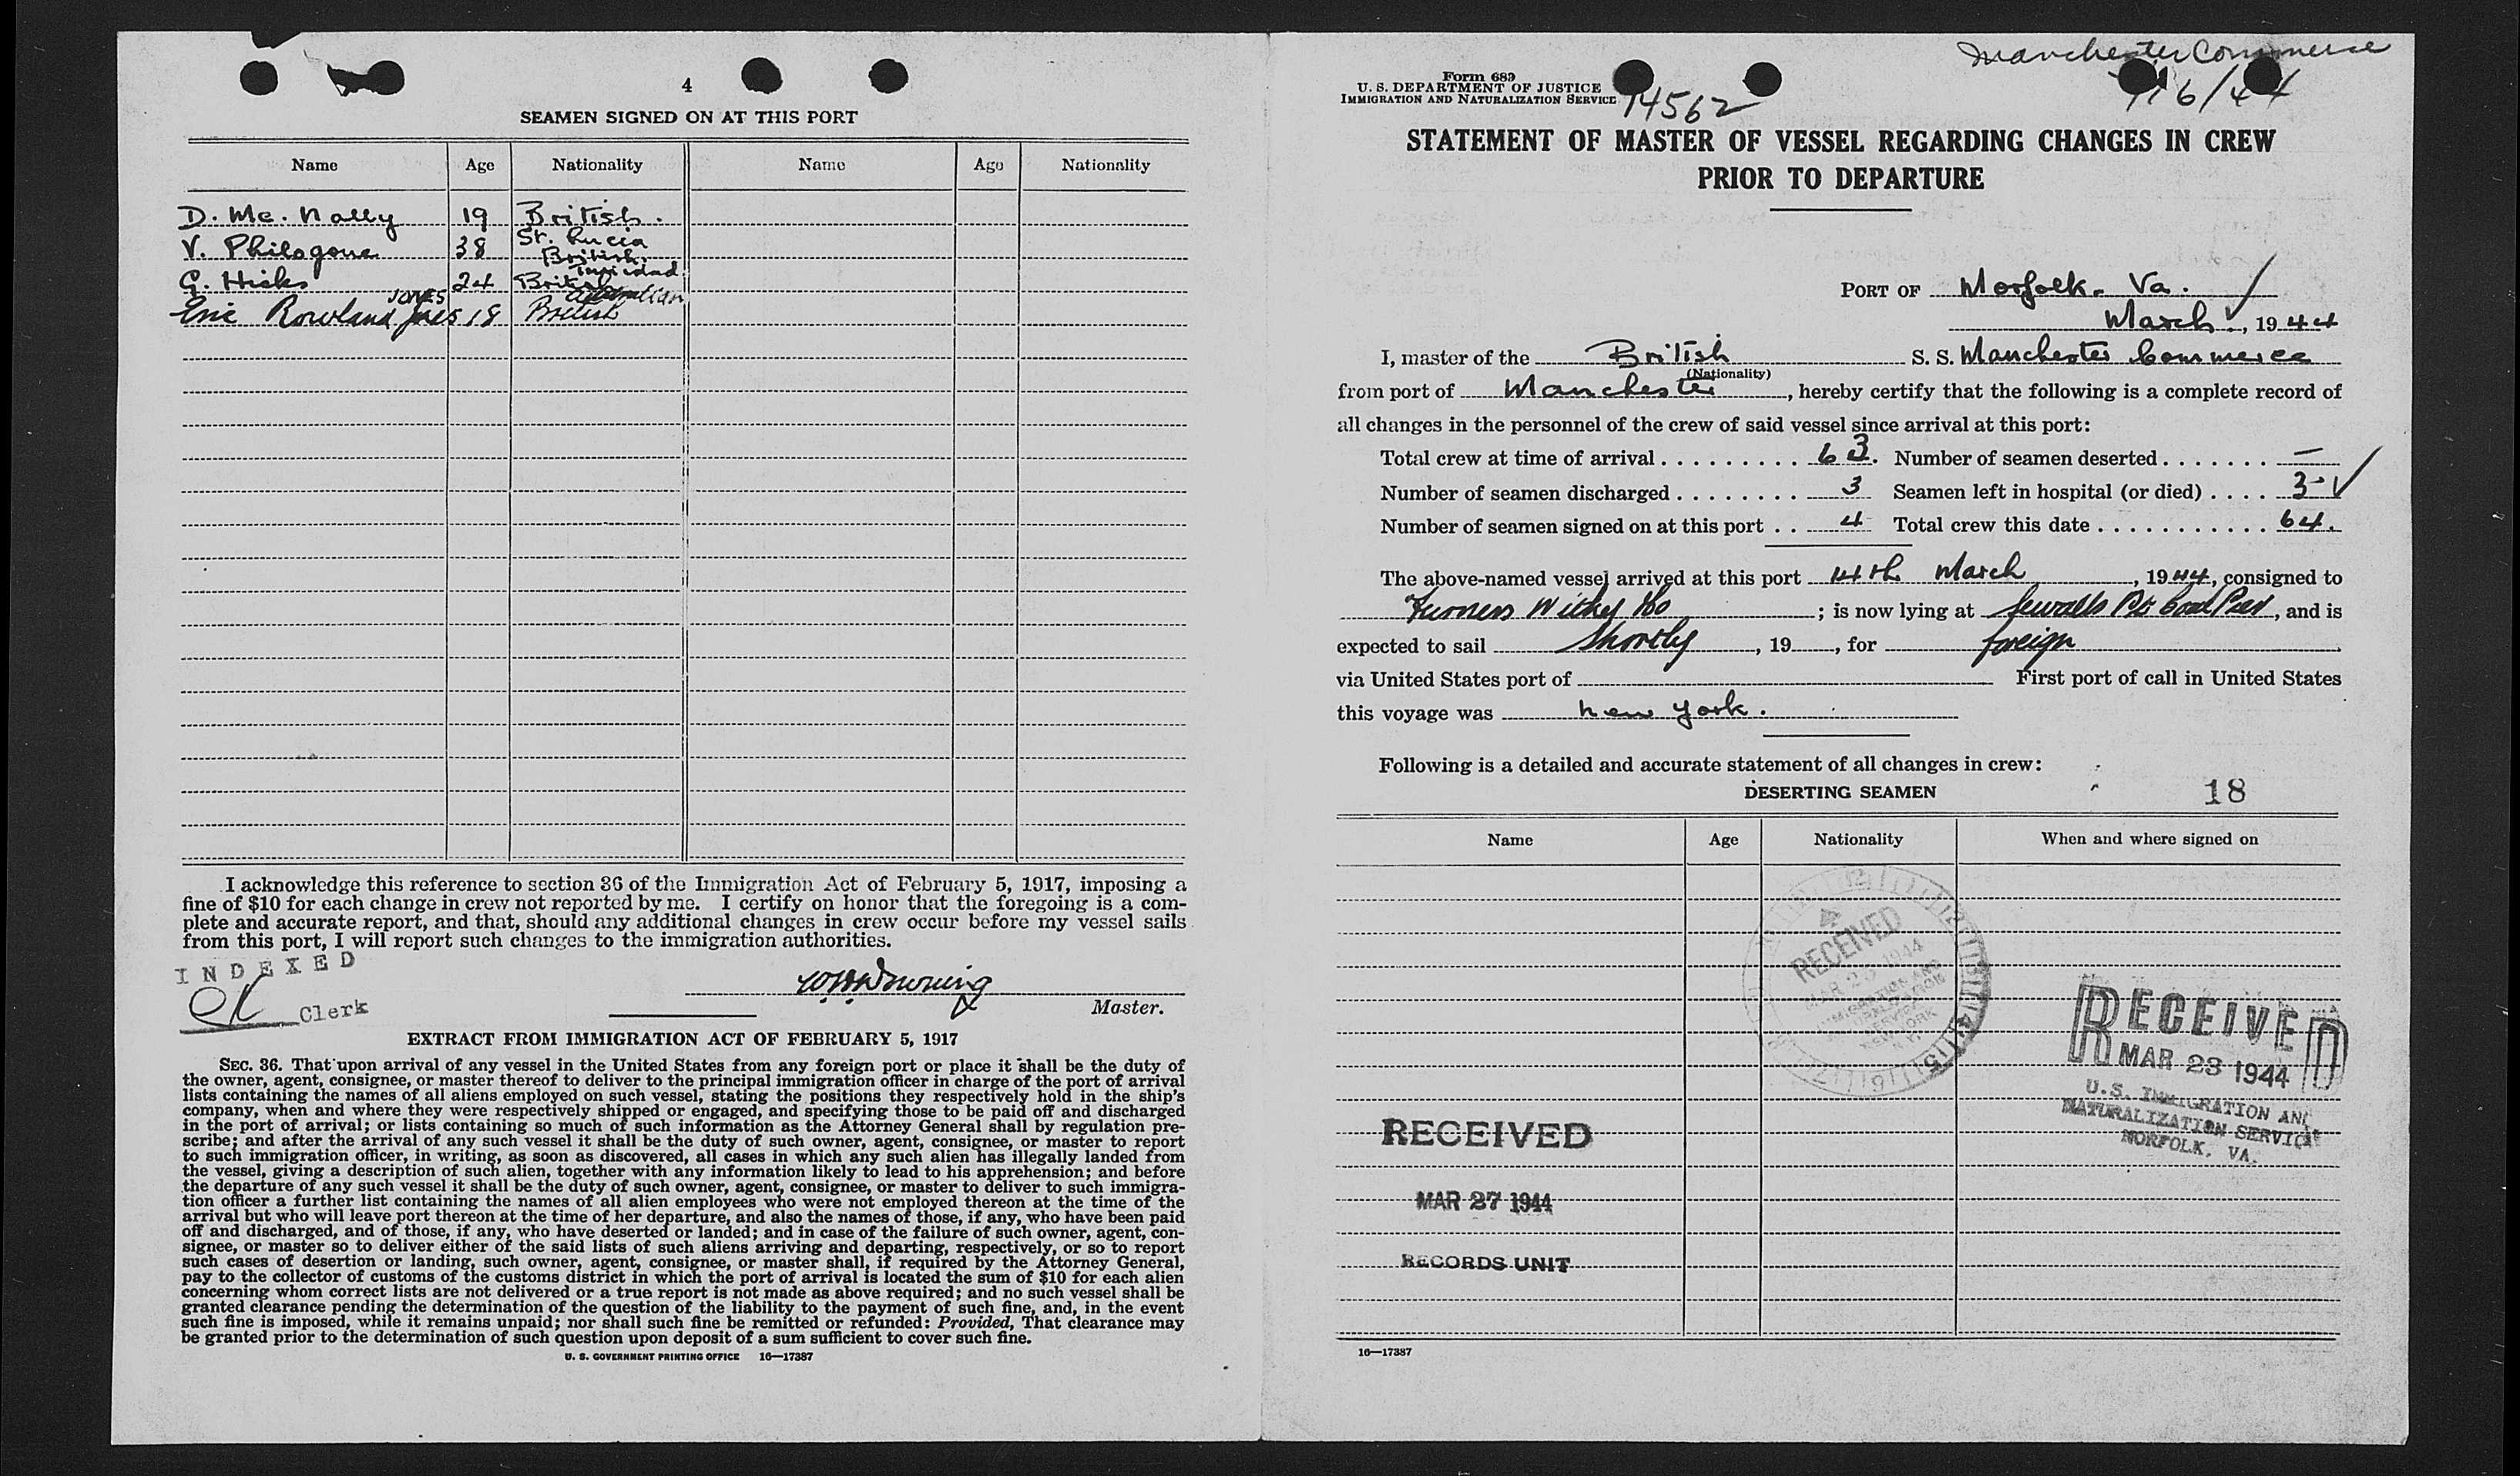 4
SEAMEN SIGNED ON AT THIS PORT
Name Age Nationality Name Age Nationality
D. Mc. Nally 19 British.
V. Philogone 38 St. Lucia British.
G. Hicks 24 British Trinidad
Eric Rowland Jones JONES 18 British
I acknowledge this reference to section 36 of the Immigration Act of February 5, 1917, imposing a
fine of $10 for each change in crew not reported by me. I certify on honor that the foregoing is a com-
plete and accurate report, and that, should any additional changes in crew occur before my vessel sails
from this port, I will report such changes to the immigration authorities.
INDEXED
Clerk
Master.
EXTRACT FROM IMMIGRATION ACT OF FEBRUARY 5, 1917
SEC. 36. That upon arrival of any vessel in the United States from any foreign port or place it shall be the duty of
the owner, agent, consignee, or master thereof to deliver to the principal immigration officer in charge of the port of arrival
lists containing the names of all aliens employed on such vessel, stating the positions they respectively hold in the ship's
company, when and where they were respectively shipped or engaged, and specifying those to be paid off and discharged
in the port of arrival; or lists containing so much of such information as the Attorney General shall by regulation pre-
scribe; and after the arrival of any such vessel it shall be the duty of such owner, agent, consignee, or master to report
to such immigration officer, in writing, as soon as discovered, all cases in which any such alien has illegally landed from
the vessel, giving a description of such alien, together with any information likely to lead to his apprehension; and before
the departure of any such vessel it shall be the duty of such owner, agent, consignee, or master to deliver to such immigra-
tion officer a further list containing the names of all alien employees who were not employed thereon at the time of the
arrival but who will leave port thereon at the time of her departure, and also the names of those, if any, who have been paid
off and discharged, and of those, if any, who have deserted or landed; and in case of the failure of such owner, agent, con-
signee, or master so to deliver either of the said lists of such aliens arriving and departing, respectively, or so to report
such cases of desertion or landing, such owner, agent, consignee, or master shall, if required by the Attorney General,
pay to the collector of customs of the customs district in which the port of arrival is located the sum of $10 for each alien
concerning whom correct lists are not delivered or a true report is not made as above required; and no such vessel shall be
granted clearance pending the determination of the question of the liability to the payment of such fine, and, in the event
such fine is imposed, while it remains unpaid; nor shall such fine be remitted or refunded: Provided, That clearance may
be granted prior to the determination of such question upon deposit of a sum sufficient to cover such fine.
U. S. GOVERNMENT PRINTING OFFICE 16—17387
Manchester Commerce
Form 689
U. S. DEPARTMENT OF JUSTICE
IMMIGRATION AND NATURALIZATION SERVICE
14562
STATEMENT OF MASTER OF VESSEL REGARDING CHANGES IN CREW
PRIOR TO DEPARTURE
PORT OF Norfolk. Va.
March, 1944
I, master of the British S. S. Manchester Commerce
(Nationality)
from port of Manchester, hereby certify that the following is a complete record of
all changes in the personnel of the crew of said vessel since arrival at this port:
Total crew at time of arrival 63. Number of seamen deserted —
Number of seamen discharged 3 Seamen left in hospital (or died) 3
Number of seamen signed on at this port 4 Total crew this date 64.
The above-named vessel arrived at this port 14th March, 1944, consigned to
Furness Withy Co; is now lying at Sewalls Pt. Coal Pier, and is
expected to sail Shortly, 19 , for foreign
via United States port of First port of call in United States
this voyage was New York.
Following is a detailed and accurate statement of all changes in crew:
DESERTING SEAMEN 18
Name Age Nationality When and where signed on
RECEIVED
RECEIVED
MAR 23 1944
U.S. IMMIGRATION AND
NATURALIZATION SERVICE
NORFOLK, VA.
RECEIVED
MAR 27 1944
RECORDS UNIT
16—17387